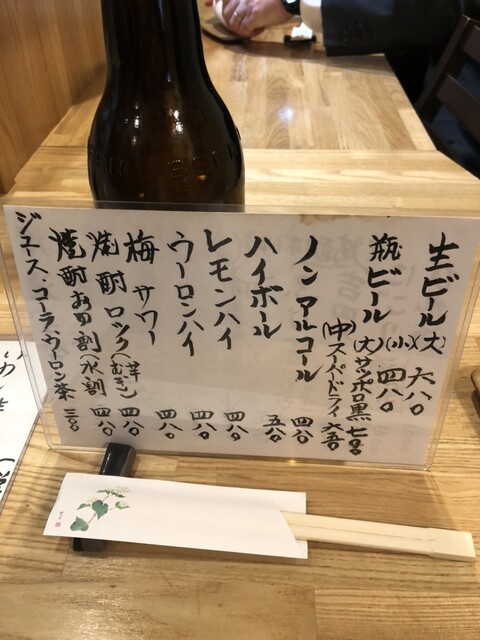 生ビール(大) 六八〇
(小) 四八〇
瓶ビール(大)サッポロ黒 七〇〇
(中)スーパードライ 六五〇
ノンアルコール 四八〇
ハイボール 五八〇
レモンハイ 四八〇
ウーロンハイ 四八〇
梅サワー 四八〇
焼酎ロック(芋 むぎ) 四八〇
焼酎お湯割(水割 四八〇
ジュース・コーラ、ウーロン茶 三〇〇